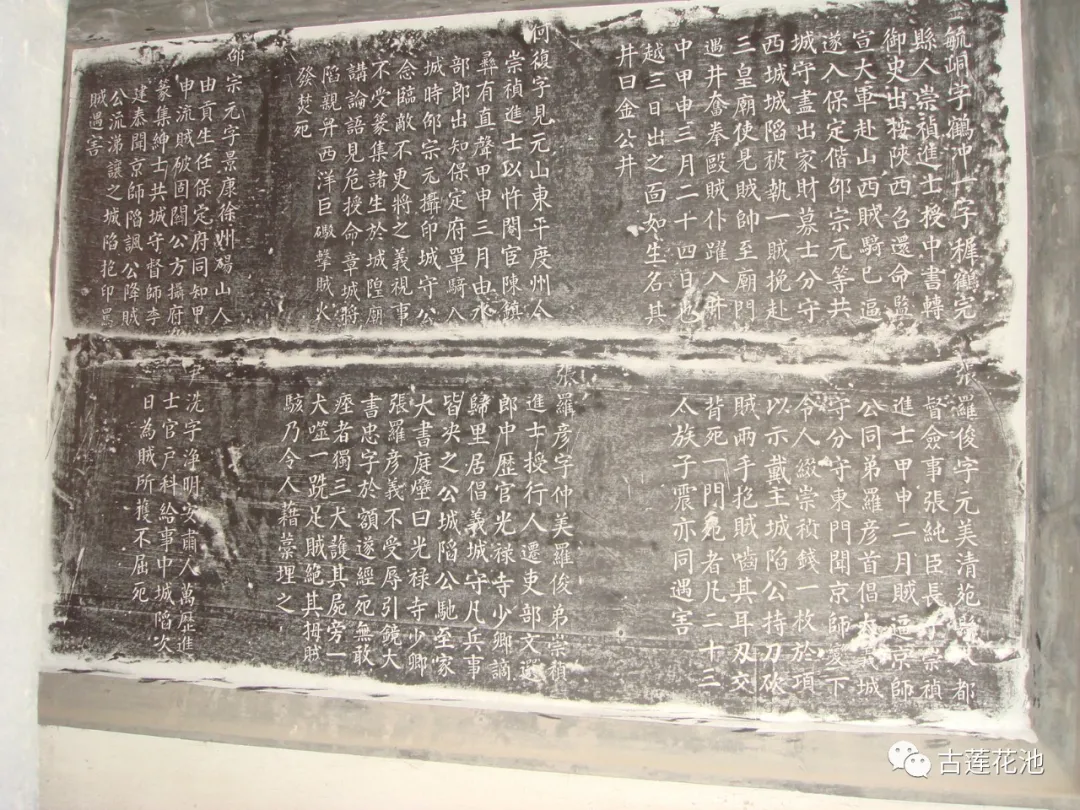 毓峒字鶴冲一字穉鶴完
縣人崇禎進士授中書轉
御史出按陝西召還命監
宣大軍赴山西賊騎已逼
遂入保定偕邵宗元等共
城守盡出家財募士分守
西城城陷被執一賊挽赴
三皇廟使見賊帥至廟門
遇井奮拳毆賊仆躍入井
中甲申三月二十四日也
越三日出之面如生名其
井曰金公井
何復字見元山東平度州人
崇禎進士以忤閹宦陳鎮
彞有直聲甲申三月由水
部郎出知保定府單騎入
城時邵宗元攝印城守公
念臨敵不更將之義視事
不受篆集諸生於城隍廟
講論語見危授命章城將
陷親舁西洋巨礮擊賊火
發焚死
邵宗元字景康徐州碭山人
由貢生任保定府同知甲
申流賊破固關公方攝府
篆集紳士共城守督師李
建泰聞京師陷諷公降賊
公流涕讓之城陷抱印罵
賊遇害
張羅俊字元美清苑縣人都
督僉事張純臣長子崇禎
進士甲申二月賊逼京師
公同弟羅彦首倡大義城
守分守東門聞京師變下
令人綴崇禎錢一枚於項
以示戴主城陷公持刀砍
賊兩手抱賊嚙其耳刃交
背死一門死者凡二十三
太族子震亦同遇害
張羅彦字仲美羅俊弟崇禎
進士授行人遷吏部文選
郎中歷官光禄寺少卿謫
歸里居倡義城守凡兵事
皆决之公城陷公馳至家
大書庭壁曰光禄寺少卿
張羅彦義不受辱引鏡大
書忠字於額遂經死無敢
瘞者獨三犬護其屍旁一
犬噬一跣足賊絕其拇賊
駭乃令人藉藁埋之
尹洗字浄明安肅人萬歷進
士官户科給事中城陷次
日為賊所獲不屈死
古莲花池